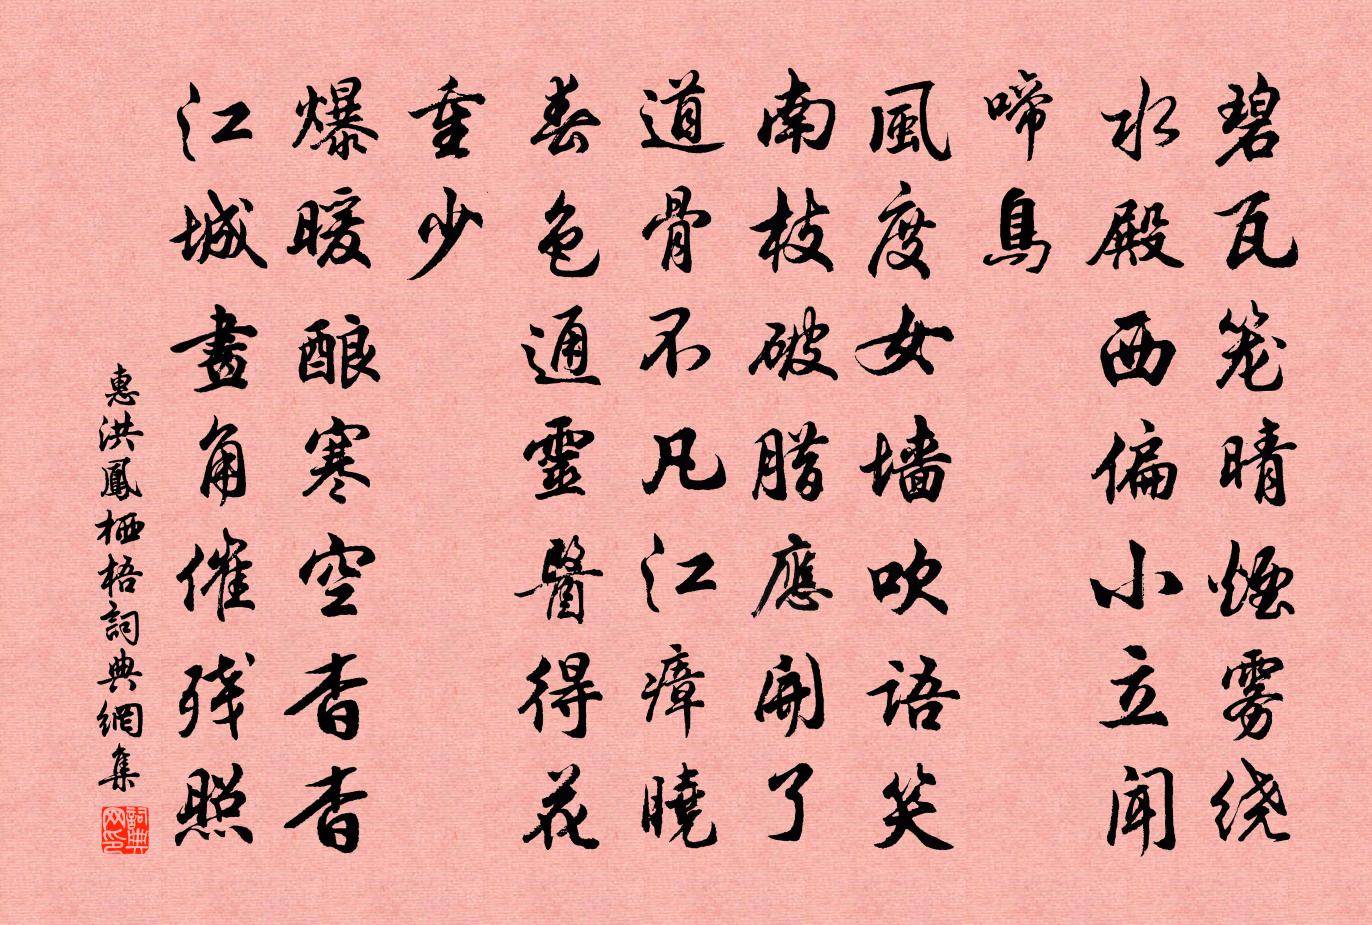 碧瓦笼晴煙雾绕
水殿西偏小立闻
啼鳥
風度女墙吹语笑
南枝破腊應開了
道骨不凡江瘴曉
春色通靈醫得花
重少
爆暖酿寒空杳杳
江城畫角催残照
惠洪鳳栖梧詞典網集
詞典网印